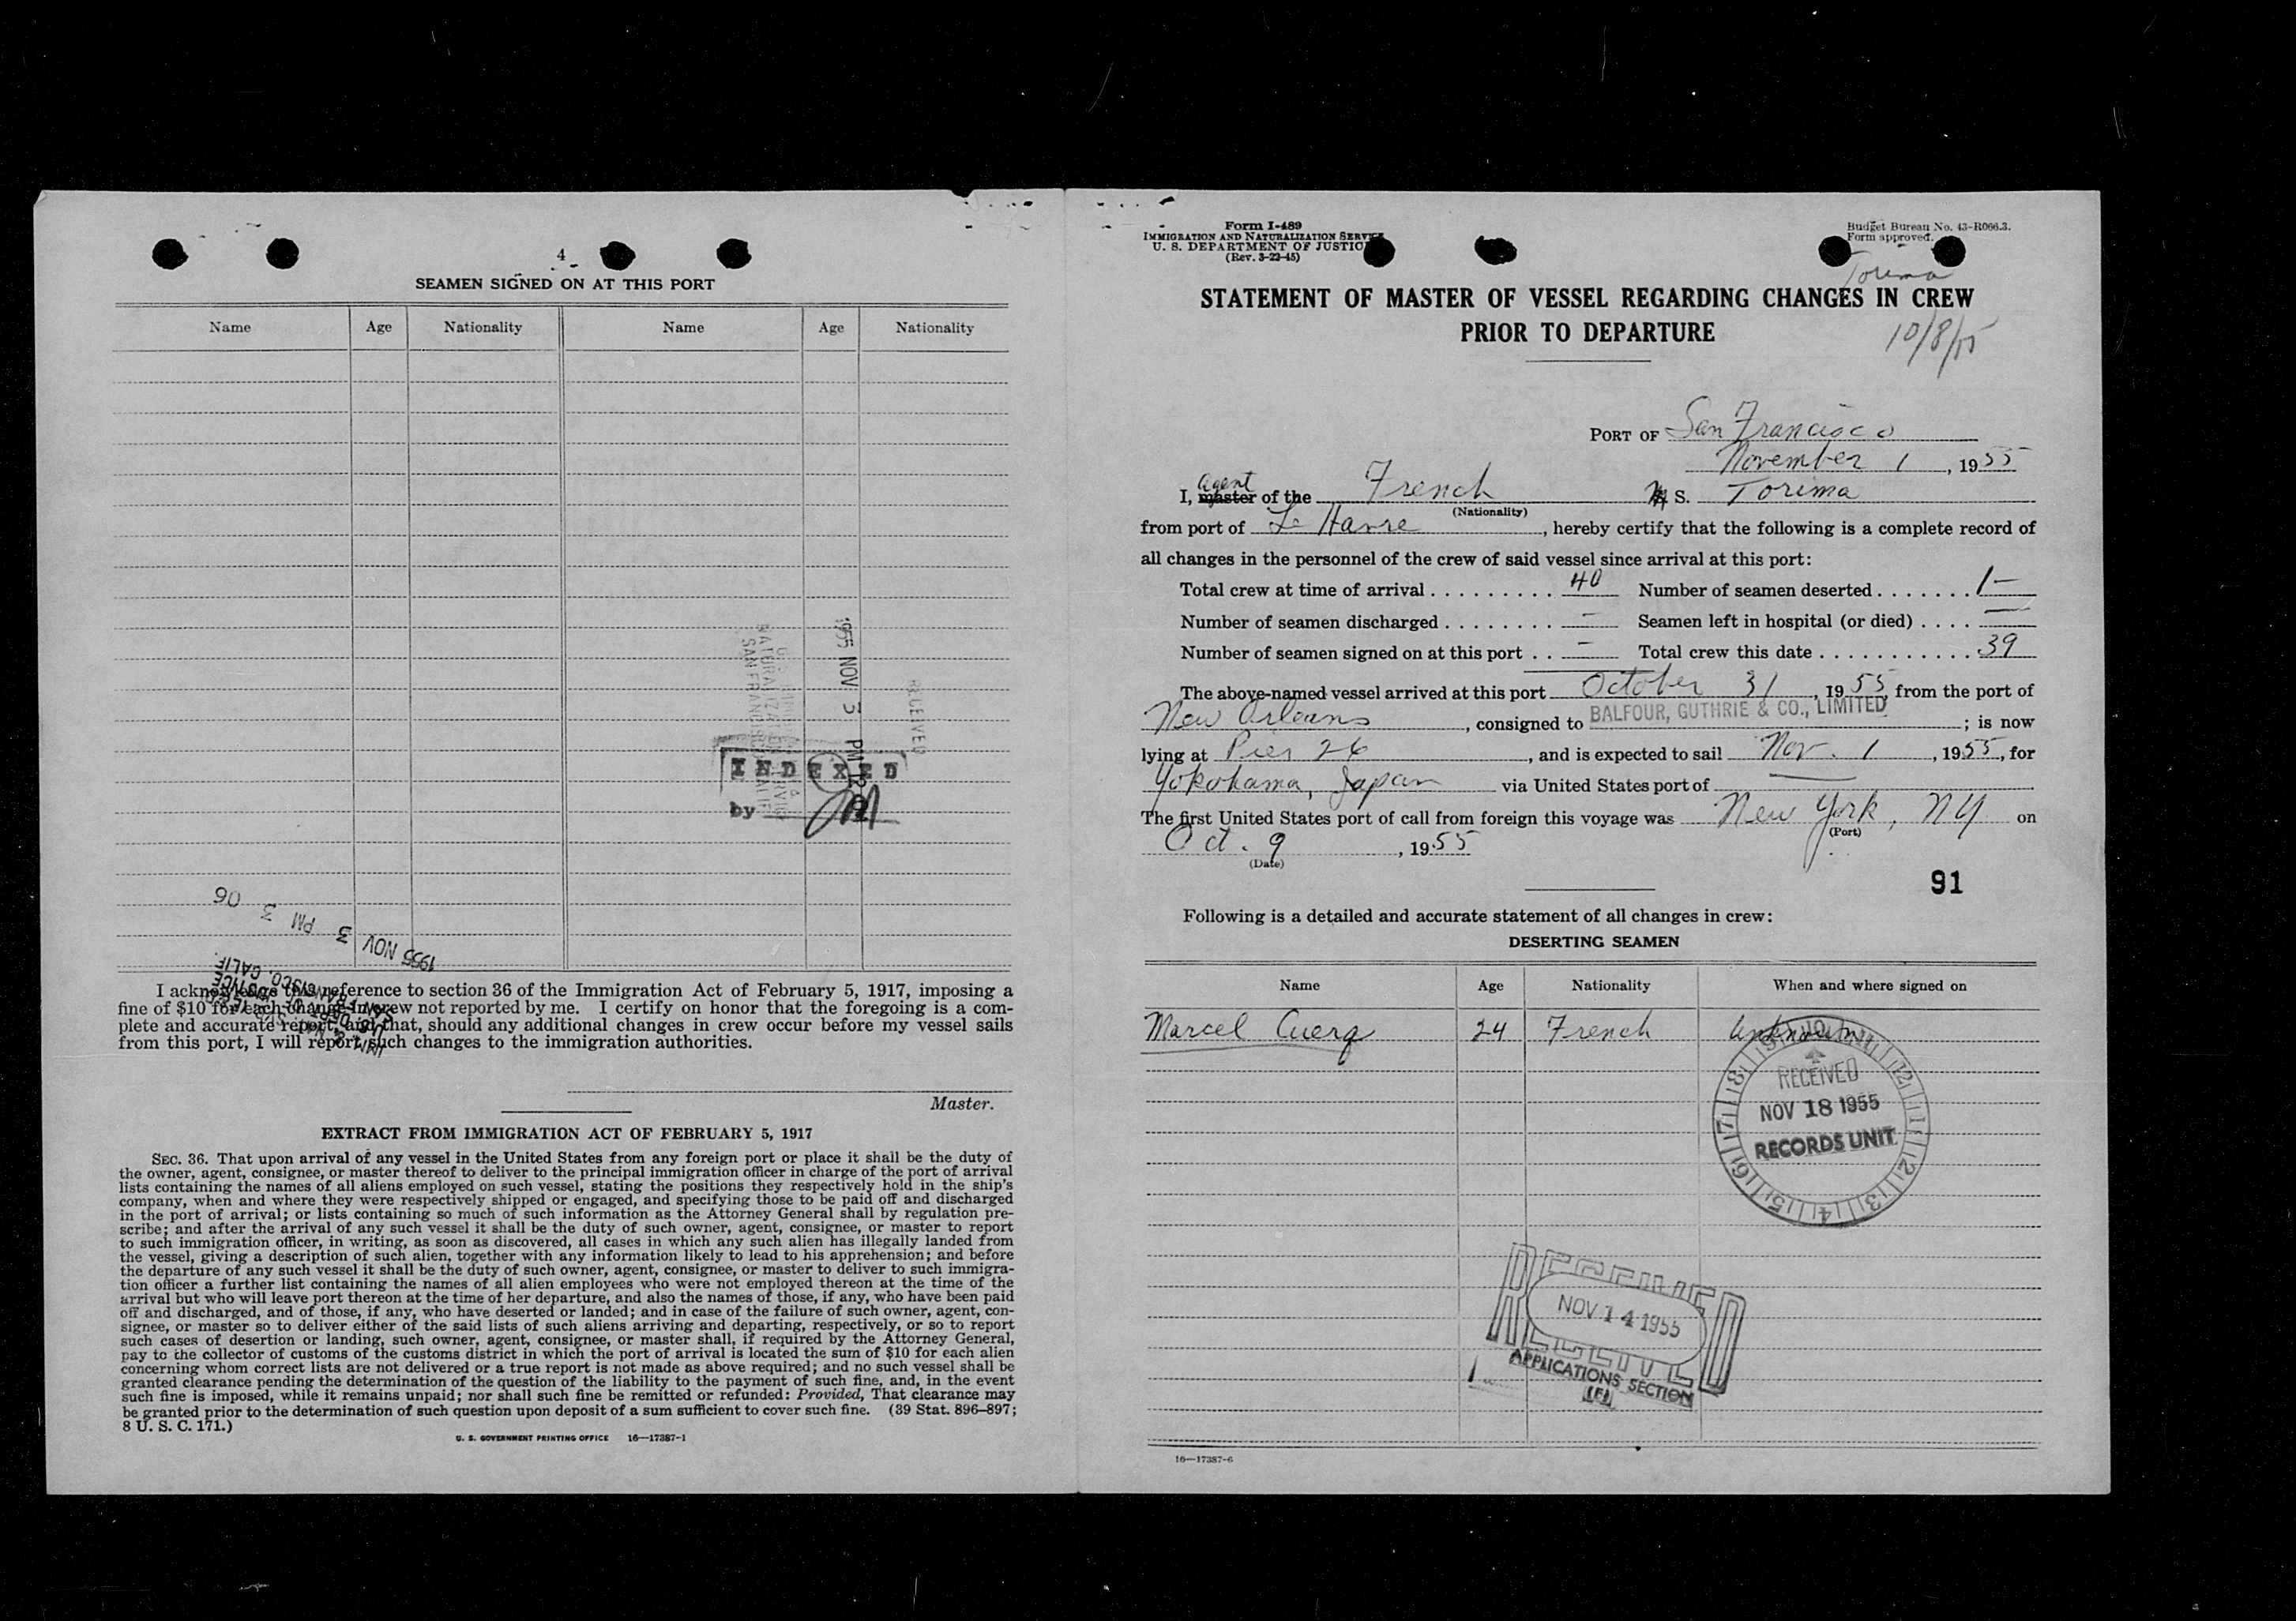 4
SEAMEN SIGNED ON AT THIS PORT
Name Age Nationality Name Age Nationality
1955 NOV 3 PM 12
RECEIVED
INDEXED
by
1955 NOV 3 PM 3 06
SAN FRANCISCO, CALIF.
I acknowledge this reference to section 36 of the Immigration Act of February 5, 1917, imposing a
fine of $10 for each change in crew not reported by me. I certify on honor that the foregoing is a com-
plete and accurate report, and that, should any additional changes in crew occur before my vessel sails
from this port, I will report such changes to the immigration authorities.
Master.
EXTRACT FROM IMMIGRATION ACT OF FEBRUARY 5, 1917
SEC. 36. That upon arrival of any vessel in the United States from any foreign port or place it shall be the duty of
the owner, agent, consignee, or master thereof to deliver to the principal immigration officer in charge of the port of arrival
lists containing the names of all aliens employed on such vessel, stating the positions they respectively hold in the ship's
company, when and where they were respectively shipped or engaged, and specifying those to be paid off and discharged
in the port of arrival; or lists containing so much of such information as the Attorney General shall by regulation pre-
scribe; and after the arrival of any such vessel it shall be the duty of such owner, agent, consignee, or master to report
to such immigration officer, in writing, as soon as discovered, all cases in which any such alien has illegally landed from
the vessel, giving a description of such alien, together with any information likely to lead to his apprehension; and before
the departure of any such vessel it shall be the duty of such owner, agent, consignee, or master to deliver to such immigra-
tion officer a further list containing the names of all alien employees who were not employed thereon at the time of the
arrival but who will leave port thereon at the time of her departure, and also the names of those, if any, who have been paid
off and discharged, and of those, if any, who have deserted or landed; and in case of the failure of such owner, agent, con-
signee, or master so to deliver either of the said lists of such aliens arriving and departing, respectively, or so to report
such cases of desertion or landing, such owner, agent, consignee, or master shall, if required by the Attorney General,
pay to the collector of customs of the customs district in which the port of arrival is located the sum of $10 for each alien
concerning whom correct lists are not delivered or a true report is not made as above required; and no such vessel shall be
granted clearance pending the determination of the question of the liability to the payment of such fine, and, in the event
such fine is imposed, while it remains unpaid; nor shall such fine be remitted or refunded: Provided, That clearance may
be granted prior to the determination of such question upon deposit of a sum sufficient to cover such fine. (39 Stat. 896–897;
8 U. S. C. 171.)
U. S. GOVERNMENT PRINTING OFFICE 16—17387-1
Form I-489
IMMIGRATION AND NATURALIZATION SERVICE
U. S. DEPARTMENT OF JUSTICE
(Rev. 3-22-45)
Budget Bureau No. 43-R066.3.
Form approved.
Torima
STATEMENT OF MASTER OF VESSEL REGARDING CHANGES IN CREW
PRIOR TO DEPARTURE
10/8/55
PORT OF San Francisco
November 1, 1955
agent
I, master of the French S. Torima
(Nationality)
from port of Le Havre, hereby certify that the following is a complete record of
all changes in the personnel of the crew of said vessel since arrival at this port:
Total crew at time of arrival 40 Number of seamen deserted 1—
Number of seamen discharged - Seamen left in hospital (or died) —
Number of seamen signed on at this port - Total crew this date 39
The above-named vessel arrived at this port October 31, 1955, from the port of
New Orleans, consigned to BALFOUR, GUTHRIE & CO., LIMITED; is now
lying at Pier 26, and is expected to sail Nov. 1, 1955, for
Yokohama, Japan via United States port of —
The first United States port of call from foreign this voyage was New York, NY on
(Port)
Oct. 9, 1955
(Date)
91
Following is a detailed and accurate statement of all changes in crew:
DESERTING SEAMEN
Name Age Nationality When and where signed on
Marcel Cuerq 24 French Unknown
RECEIVED
NOV 18 1955
RECORDS UNIT
RECEIVED
NOV 14 1955
APPLICATIONS SECTION
16—17387-6